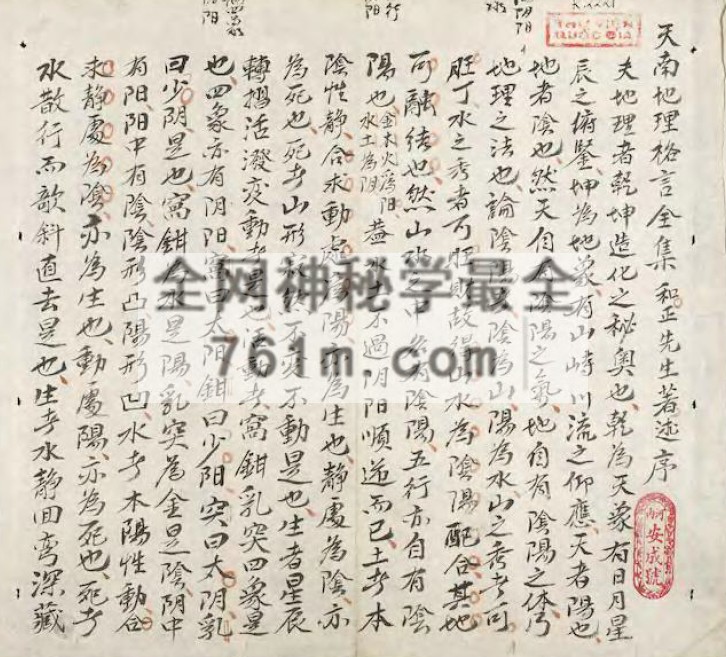 天南地理格言全集 和正先生著述序
夫地理者乾坤造化之秘奥也乾為天象有日月星
辰之俯鑒坤為地象有山峙川流之仰應天者陽也
地者陰也然天自有陰陽之氣地自有陰陽之体乃
地理之法也論陰陽陰為山陽為水山之秀者可
旺丁水之秀者可旺財故得山水為陰陽配合其地
可融結也然山水之中各有陰陽五行亦自有陰
陽也金木火為陽水土為陰蓋水者不過阴阳順逆而已土者本
陰性静合求動處為陽亦為生也静處為陰亦
為死也死者山形不変不動是也生者星辰
轉摺活潑変動者是也活動者窩鉗乳突四象是
也四象亦有阴阳窩曰太阳鉗曰少阳突曰太阴乳
曰少阴是也窩鉗為水是陽乳突為金是陰阴中
有阳阳中有陰陰形凸陽形凹水者本陽性動合
求静處為陰亦為生也動處陽亦為死也死者
水散行而欹斜直去是也生者水静回弯深藏
THƯ VIỆN
QUỐC GIA
河南
安成號
全网神秘学最全
761m.com